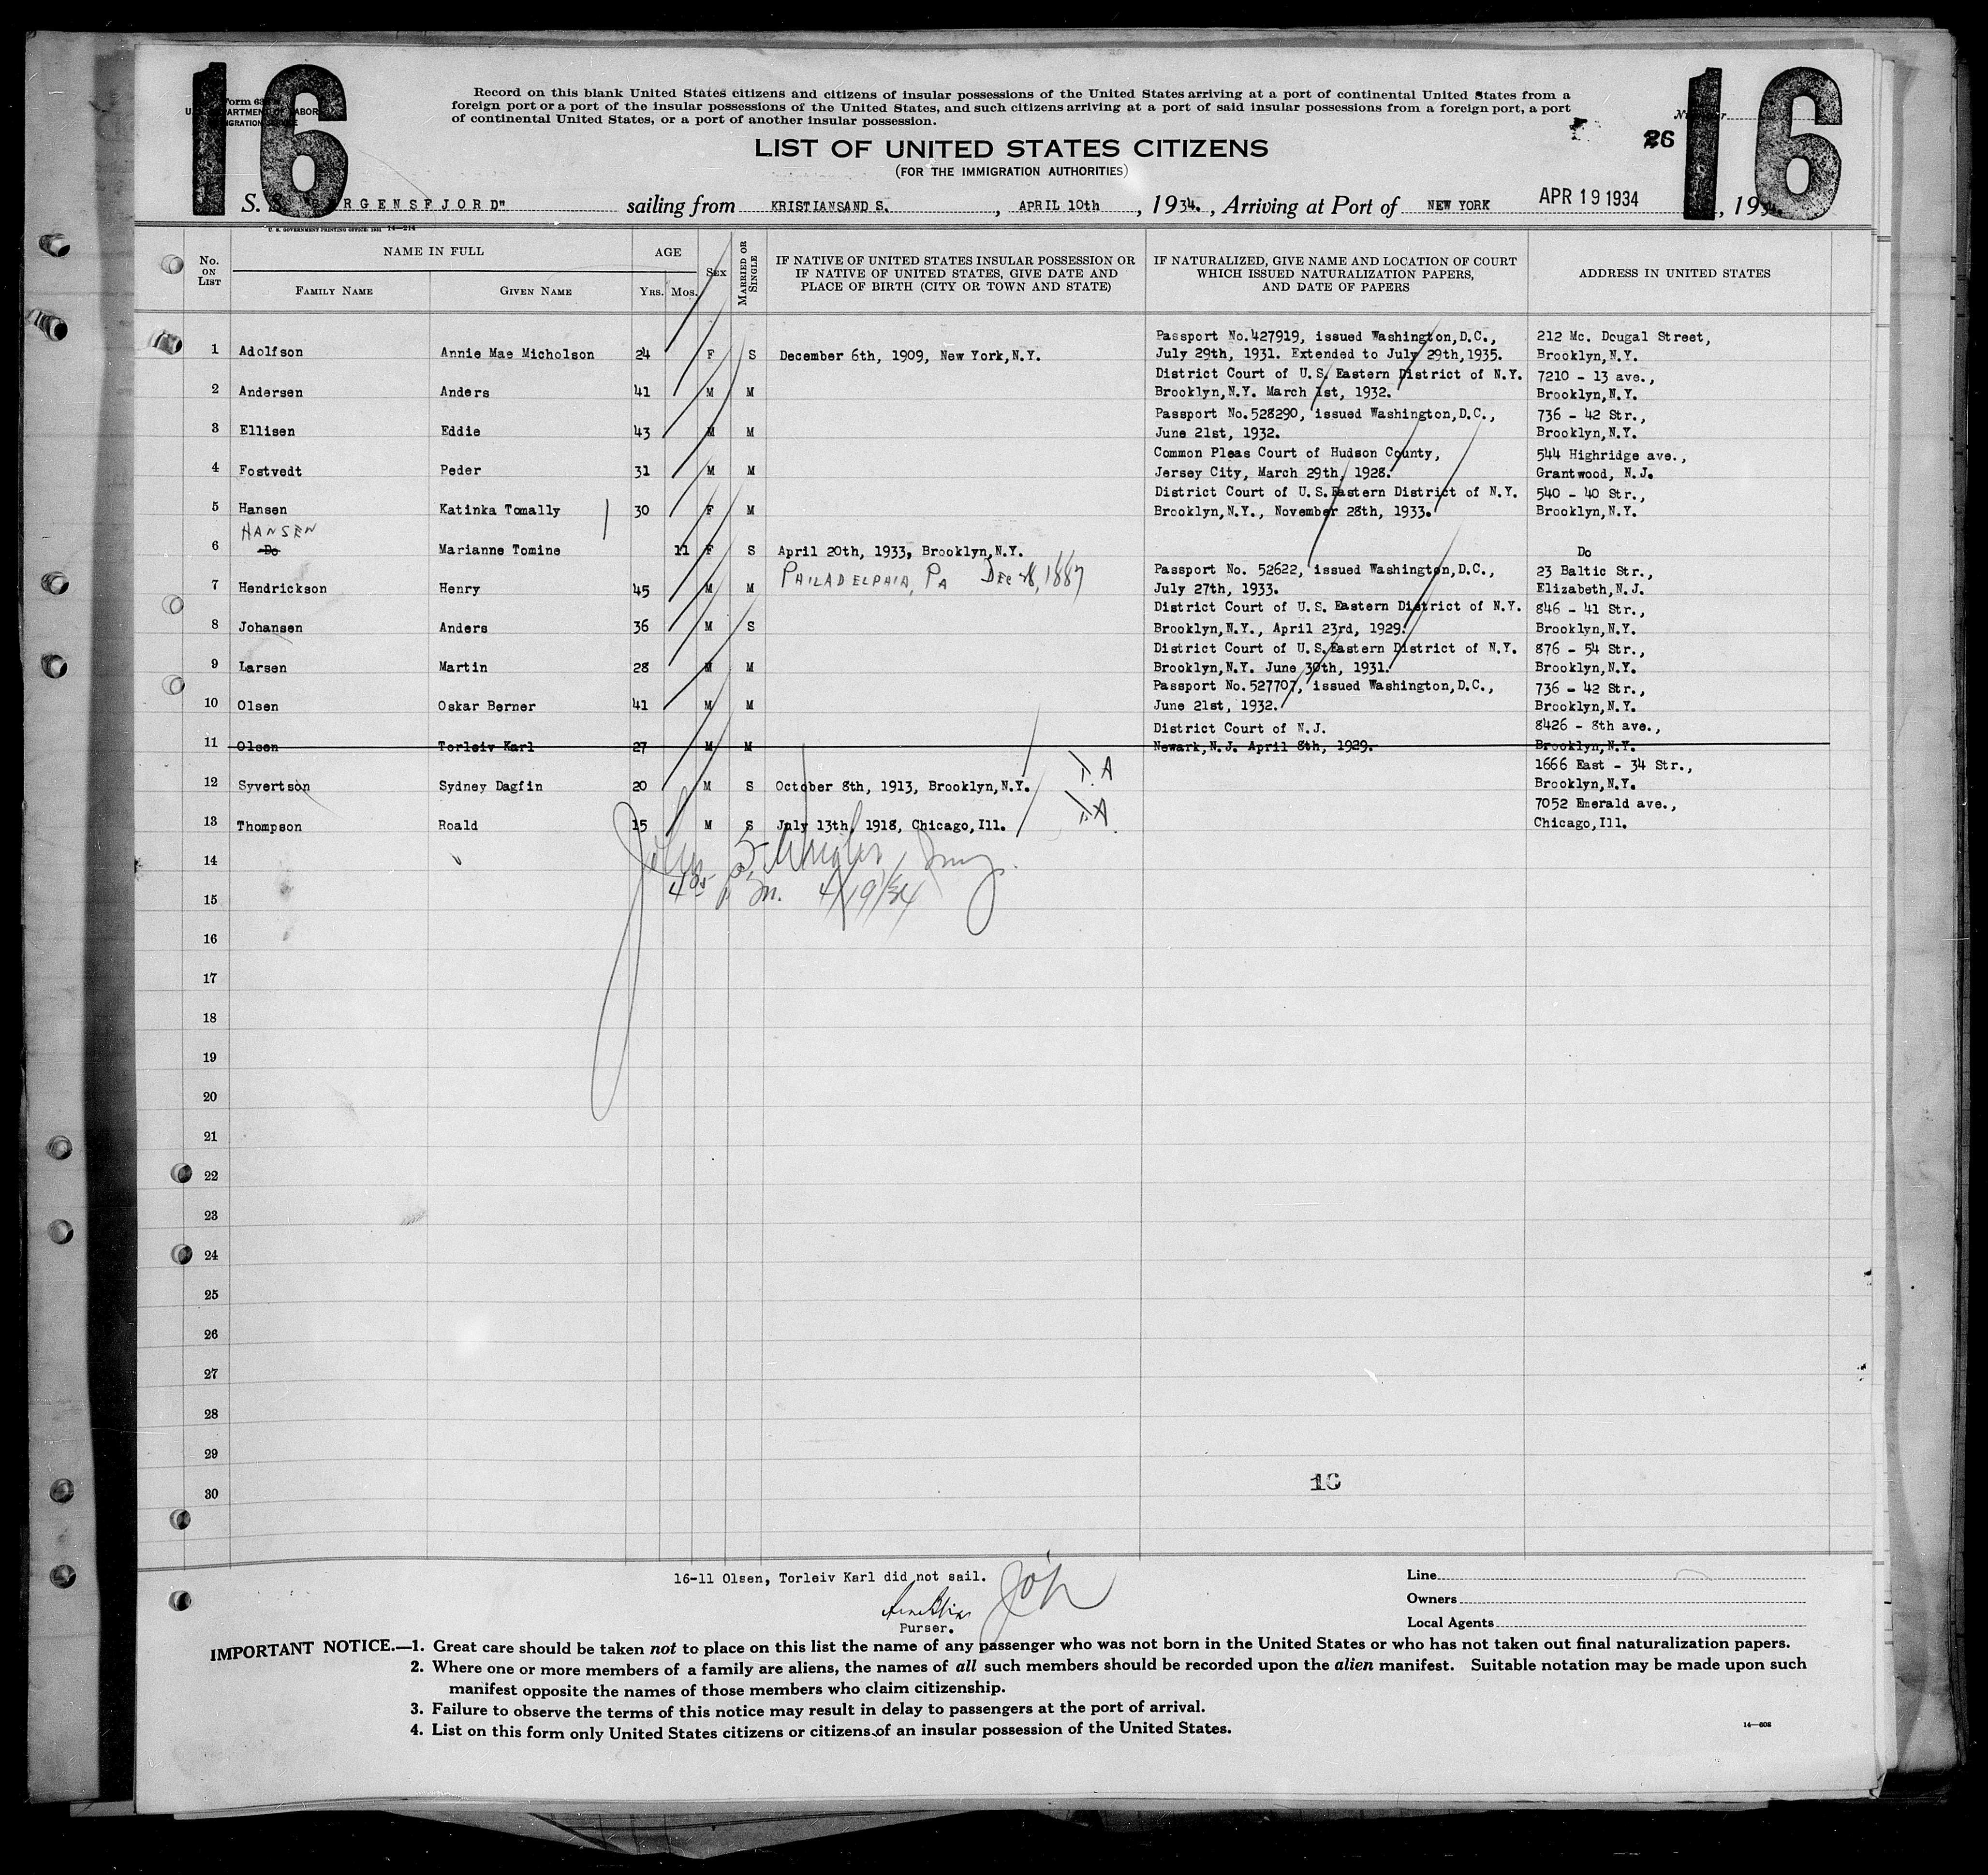 16
16
Record on this blank United States citizens and citizens of insular possessions of the United States arriving at a port of continental United States from a
foreign port or a port of the insular possessions of the United States, and such citizens arriving at a port of said insular possessions from a foreign port, a port
of continental United States, or a port of another insular possession.
26
LIST OF UNITED STATES CITIZENS
(FOR THE IMMIGRATION AUTHORITIES)
S. "BERGENSFJORD" sailing from KRISTIANSAND S., APRIL 10th, 1934., Arriving at Port of NEW YORK APR 19 1934, 1934.
U. S. GOVERNMENT PRINTING OFFICE: 1931 14—214
No. ON LIST
NAME IN FULL
FAMILY NAME
GIVEN NAME
AGE
YRS. MOS.
SEX
MARRIED OR SINGLE
IF NATIVE OF UNITED STATES INSULAR POSSESSION OR
IF NATIVE OF UNITED STATES, GIVE DATE AND
PLACE OF BIRTH (CITY OR TOWN AND STATE)
IF NATURALIZED, GIVE NAME AND LOCATION OF COURT
WHICH ISSUED NATURALIZATION PAPERS,
AND DATE OF PAPERS
ADDRESS IN UNITED STATES
Passport No.427919, issued Washington,D.C., 212 Mc. Dougal Street,
1 Adolfson Annie Mae Micholson 24 F S December 6th, 1909, New York,N.Y. July 29th, 1931. Extended to July 29th,1935. Brooklyn,N.Y.
District Court of U.S. Eastern District of N.Y. 7210 - 13 ave.,
2 Andersen Anders 41 M M Brooklyn,N.Y. March 1st, 1932. Brooklyn,N.Y.
Passport No.528290, issued Washington,D.C., 736 - 42 Str.,
3 Ellisen Eddie 43 M M June 21st, 1932. Brooklyn,N.Y.
Common Pleas Court of Hudson County, 544 Highridge ave.,
4 Fostvedt Peder 31 M M Jersey City, March 29th, 1928. Grantwood, N.J.
District Court of U.S.Eastern District of N.Y. 540 - 40 Str.,
5 Hansen Katinka Tomally 30 F M Brooklyn,N.Y., November 28th, 1933. Brooklyn,N.Y.
HANSEN
6 Do Marianne Tomine 11 F S April 20th, 1933, Brooklyn,N.Y. Do
PHILADELPHIA, PA DEC 28, 1887 Passport No. 52622, issued Washington,D.C., 23 Baltic Str.,
7 Hendrickson Henry 45 M M July 27th, 1933. Elizabeth,N.J.
District Court of U.S. Eastern District of N.Y. 846 - 41 Str.,
8 Johansen Anders 36 M S Brooklyn,N.Y., April 23rd, 1929. Brooklyn,N.Y.
District Court of U.S.Eastern District of N.Y. 876 - 54 Str.,
9 Larsen Martin 28 M M Brooklyn,N.Y. June 30th, 1931. Brooklyn,N.Y.
Passport No.527707, issued Washington,D.C., 736 - 42 Str.,
10 Olsen Oskar Berner 41 M M June 21st, 1932. Brooklyn,N.Y.
District Court of N.J. 8426 - 8th ave.,
11 Olsen Torleiv Karl 27 M M Newark,N.J. April 8th, 1929. Brooklyn,N.Y.
1666 East - 34 Str.,
12 Syvertson Sydney Dagfin 20 M S October 8th, 1913, Brooklyn,N.Y. Brooklyn,N.Y.
7052 Emerald ave.,
13 Thompson Roald 15 M S July 13th, 1918, Chicago,Ill. Chicago,Ill.
14
4 05 P.M. 4/19/34
15
16
17
18
19
20
21
22
23
24
25
26
27
28
29
30
16
16-11 Olsen, Torleiv Karl did not sail.
Purser.
Line
Owners
Local Agents
IMPORTANT NOTICE.—1. Great care should be taken not to place on this list the name of any passenger who was not born in the United States or who has not taken out final naturalization papers.
2. Where one or more members of a family are aliens, the names of all such members should be recorded upon the alien manifest. Suitable notation may be made upon such
manifest opposite the names of those members who claim citizenship.
3. Failure to observe the terms of this notice may result in delay to passengers at the port of arrival.
4. List on this form only United States citizens or citizens of an insular possession of the United States.
14—608